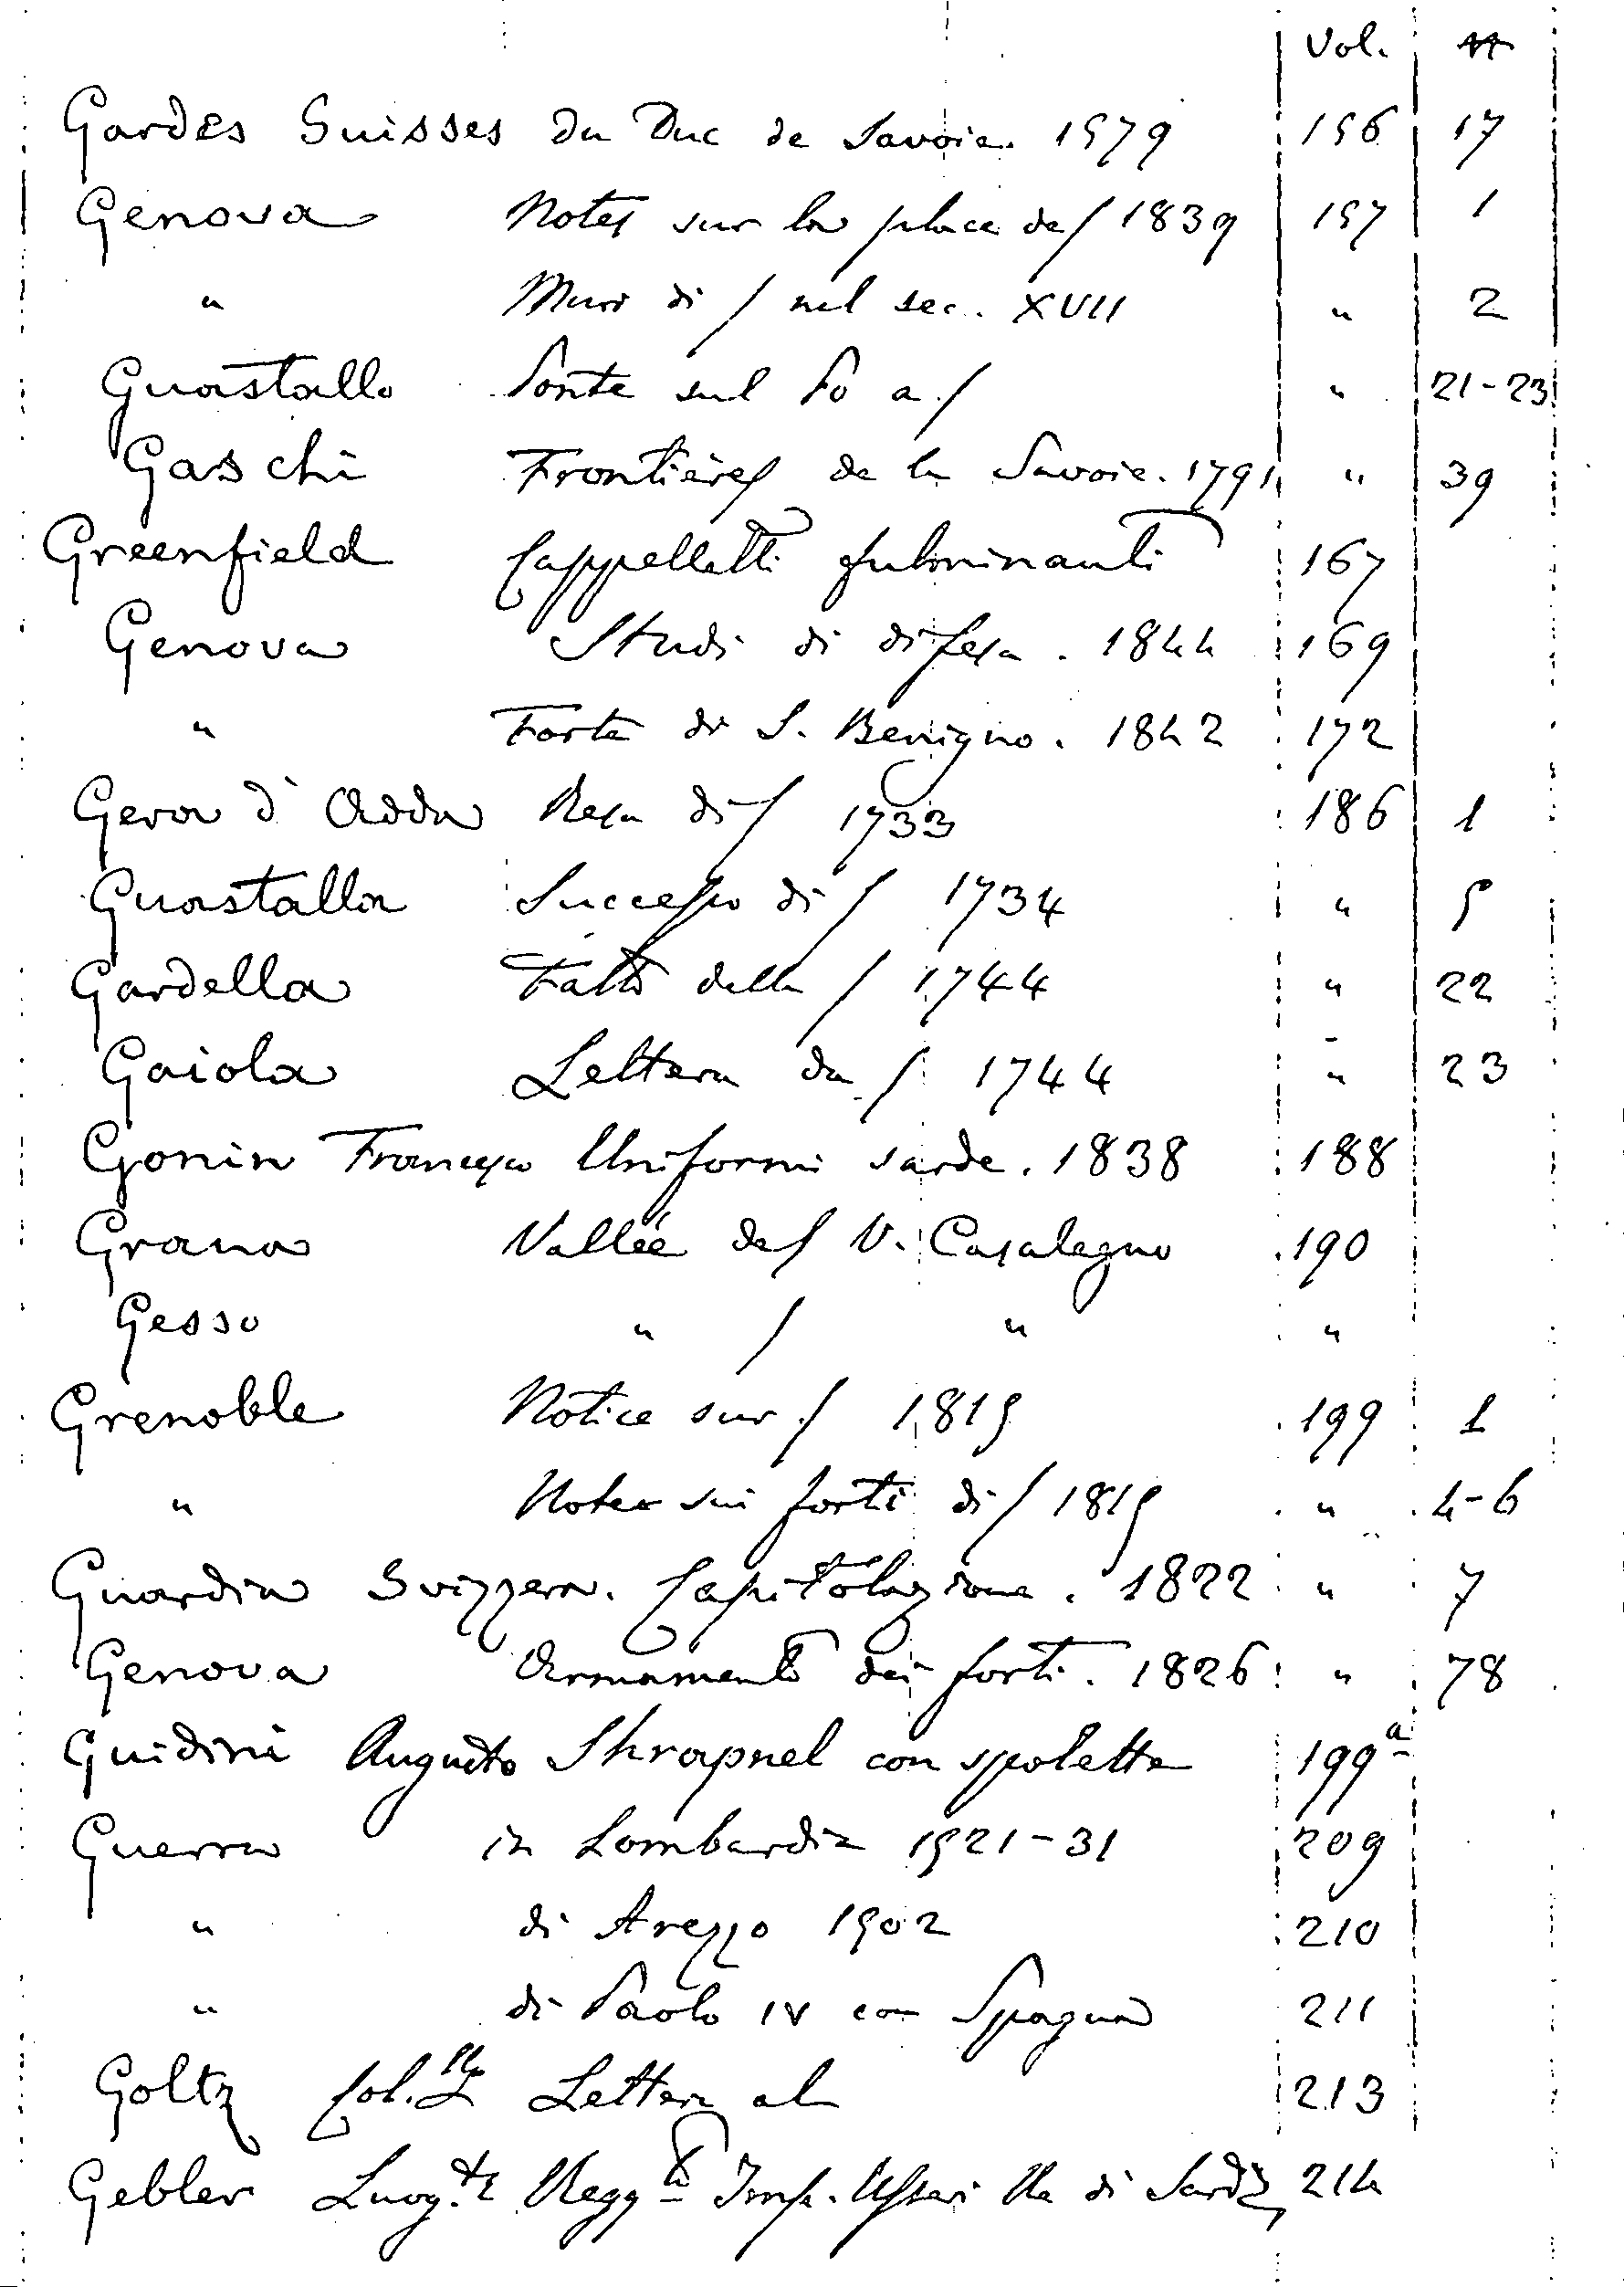 Vol. n
Gardes Suisses du Duc de Savoie. 1579 156 17
Genova Notes sur la place de / 1839 157 1
" Muri di / nel sec. XVII " 2
Guastalla Ponte sul Po a / " 21-23
Gaschi Frontières de la Savoie. 1791 " 39
Greenfield Cappelletti fulminanti 167
Genova Studi di difesa. 1844 169
" Forte di S. Benigno. 1842 172
Gera d'Adda Resa di / 1733 186 1
Guastalla Successo di / 1734 " 5
Gardella Fatto della / 1744 " 22
Gaiola Lettera da / 1744 " 23
Gonin Francesco Uniformi sarde. 1838 188
Grana Vallée de / V. Casalegno 190
Gesso " / " "
Grenoble Notice sur / 1815 199 1
" Notes sui forti di / 1815 " 4-6
Guardia Svizzera. Capitolazione. 1822 " 7
Genova Armamento dei forti. 1826 " 78
Guidini Augusto Shrapnel con spoletta 199a
Guerra in Lombardia 1521-31 209
" di Arezzo 1502 210
" di Paolo IV con Spagna 211
Goltz Col. Lettera al 213
Gebler Luog.te Regg.to Imp. Usseri Re di Sard. 214